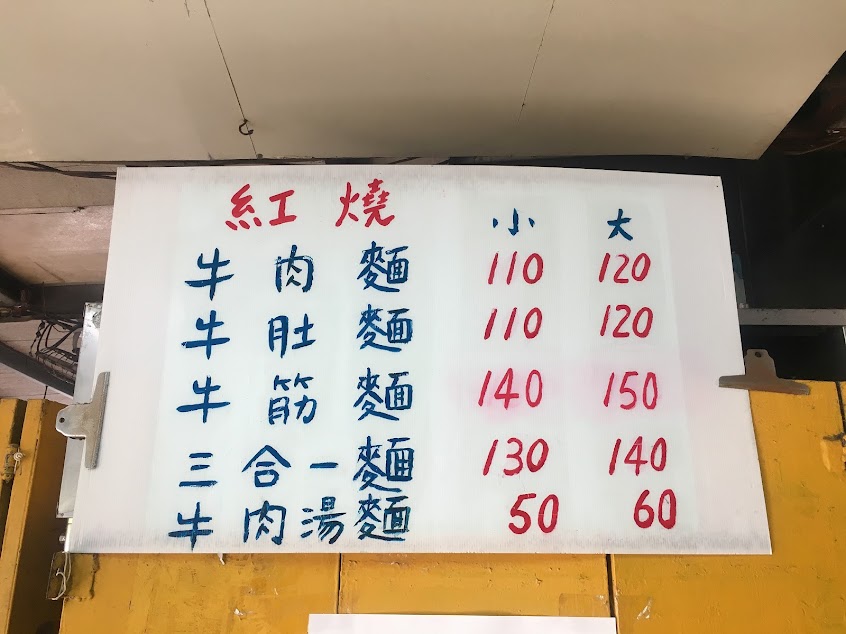 紅燒 小 大
牛肉麵 110 120
牛肚麵 110 120
牛筋麵 140 150
三合一麵 130 140
牛肉湯麵 50 60